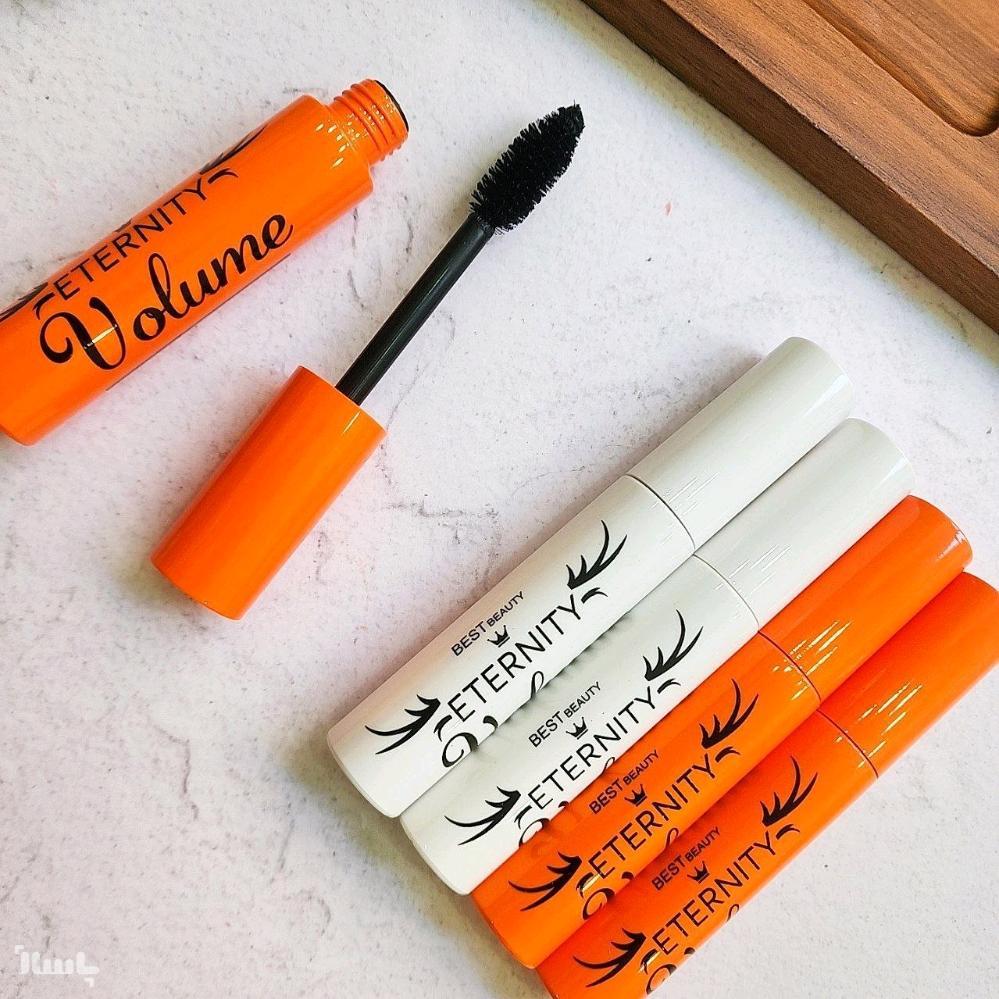 ETERNITY
Volume
BEST BEAUTY
ETERNITY
BEST BEAUTY
ETERNITY
BEST BEAUTY
ETERNITY
BEST BEAUTY
ETERNITY
باسلام